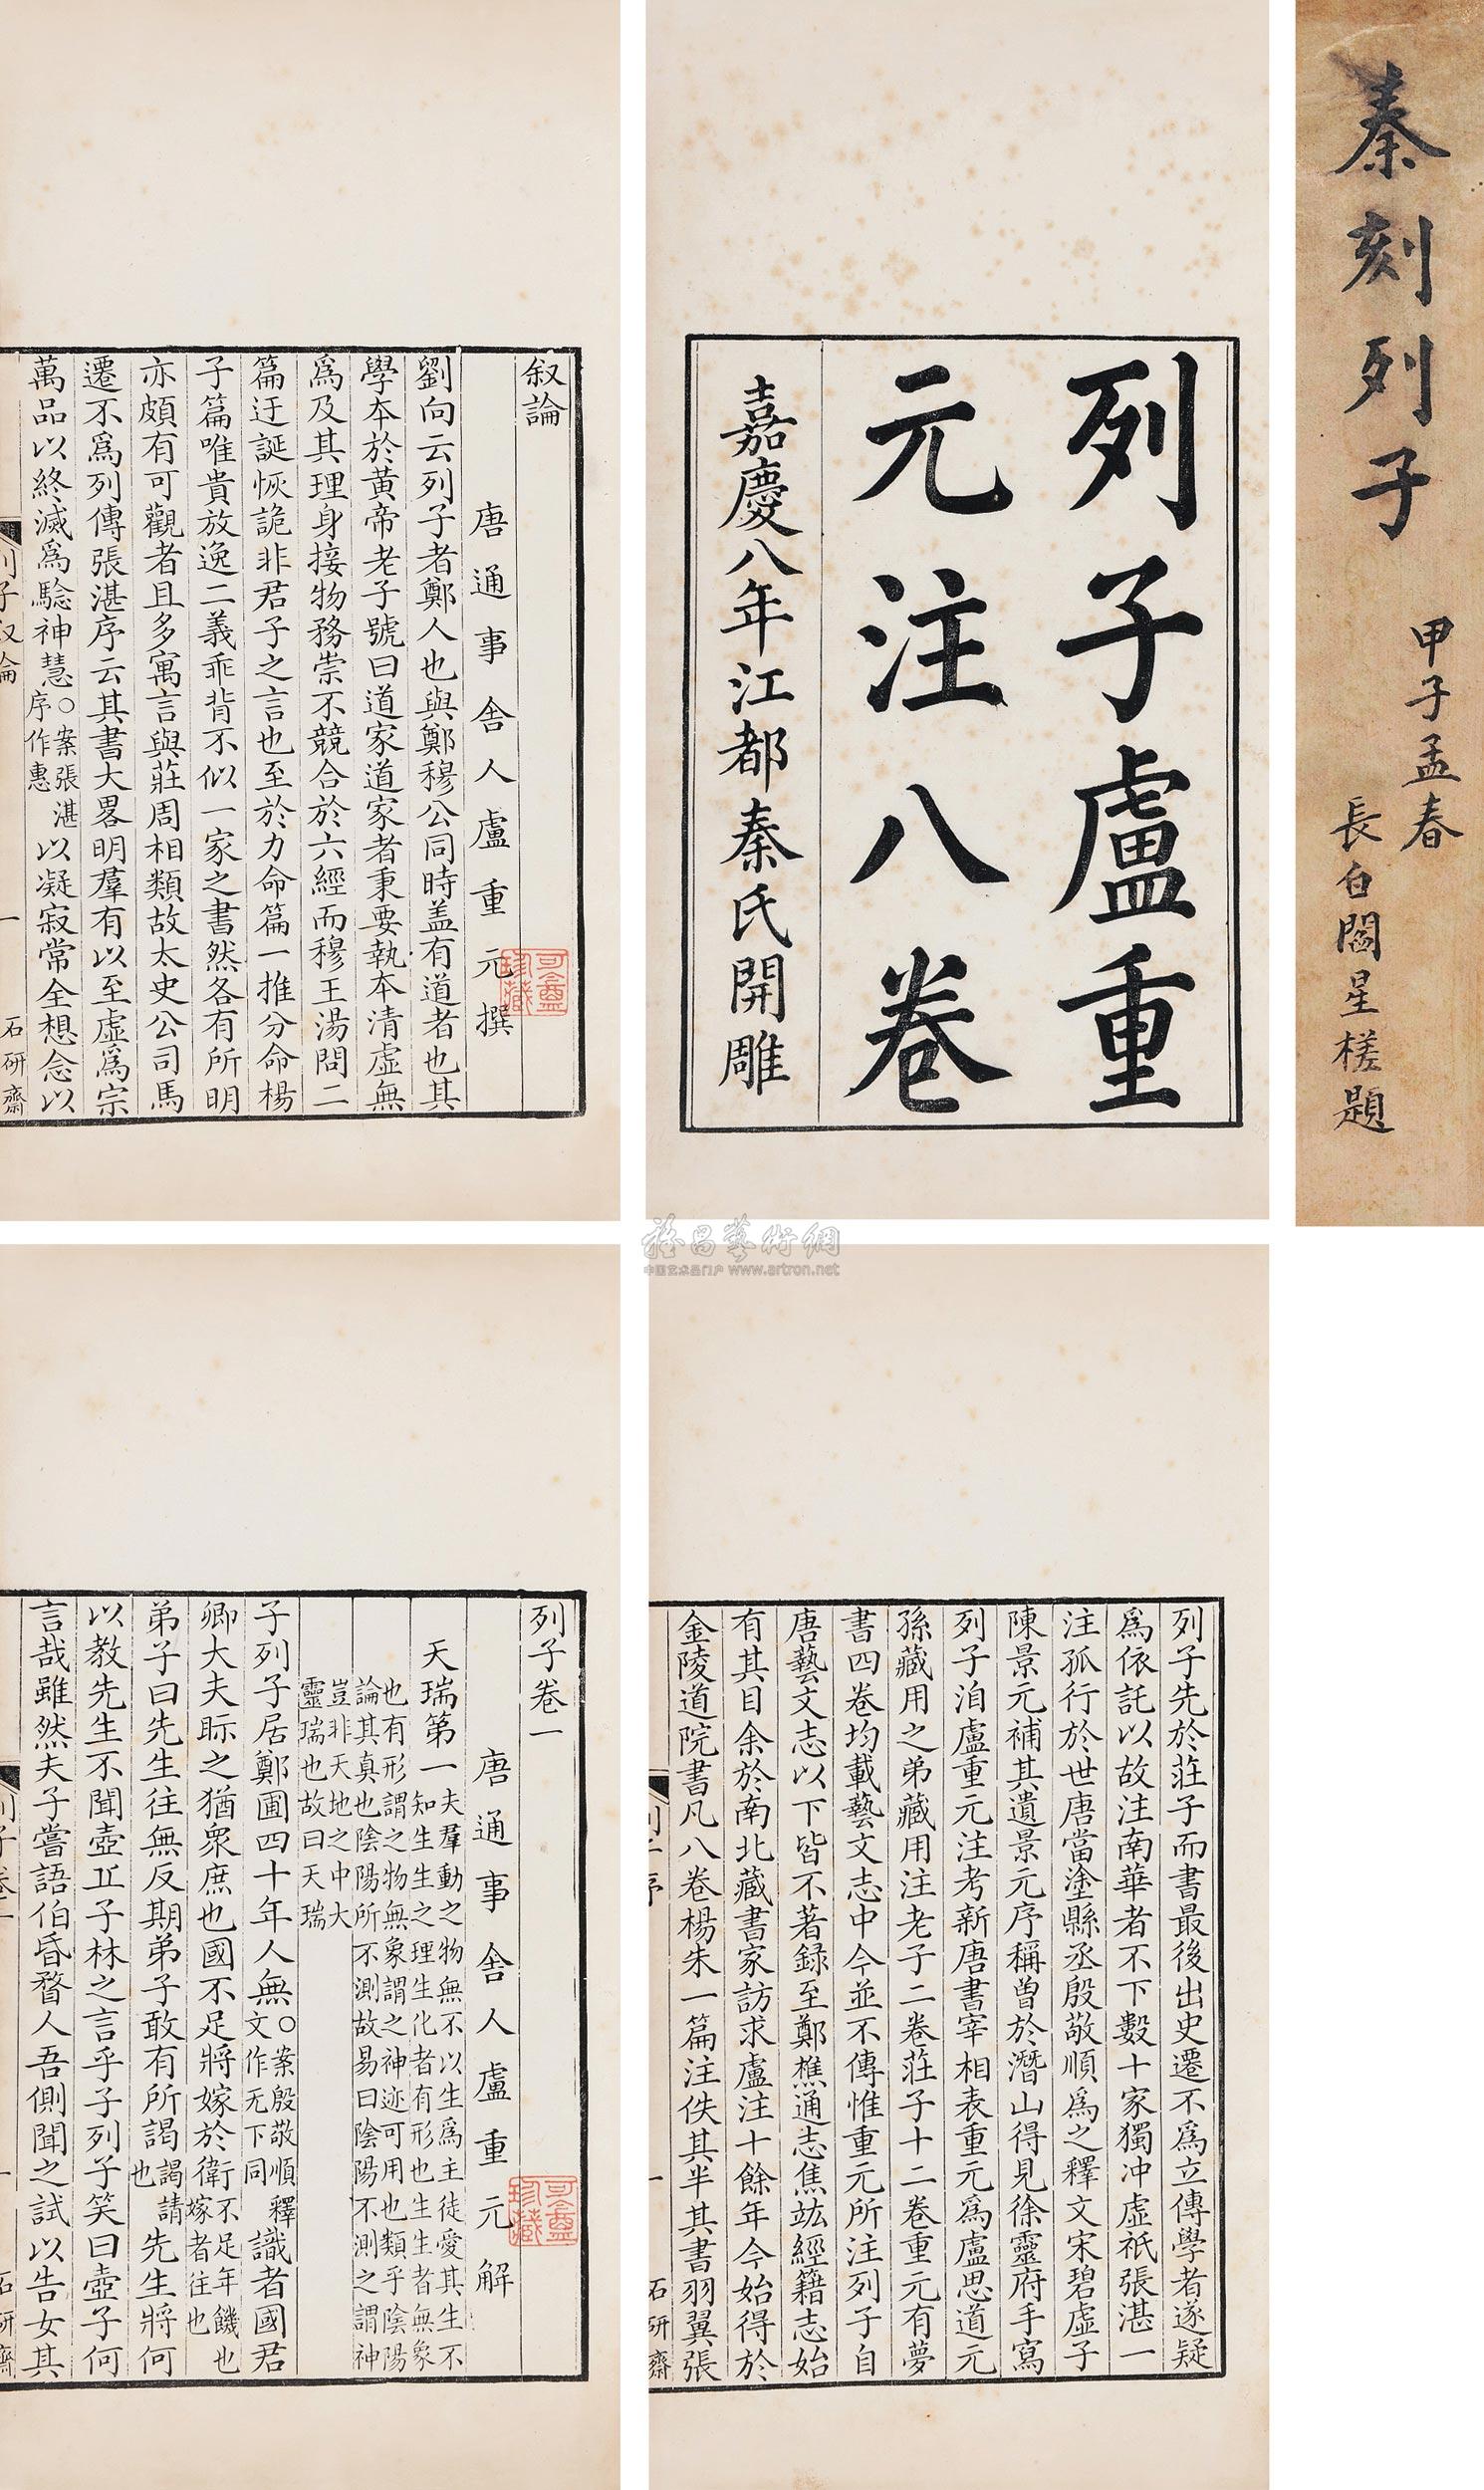 秦刻列子
甲子孟春
長白閻星槎題
列子盧重
元注八卷
嘉慶八年江都秦氏開雕
叙論
唐通事舍人盧重元撰
劉向云列子者鄭人也與鄭穆公同時盖有道者也其
學本於黃帝老子號曰道家道家者秉要執本清虛無
爲及其理身接物務崇不競合於六經而穆王湯問二
篇迂誕恢詭非君子之言也至於力命篇一推分命楊
子篇唯貴放逸二義乖背不似一家之書然各有所明
亦頗有可觀者且多寓言與莊周相類故太史公司馬
遷不爲列傳張湛序云其書大畧明羣有以至虛爲宗
萬品以終滅爲驗神慧○案張湛序作惠以凝寂常全想念以
列子叙論
一
石研齋
可盦珍藏
列子先於莊子而書最後出史遷不爲立傳學者遂疑
爲依託以故注南華者不下數十家獨冲虛祇張湛一
注孤行於世唐當塗縣丞殷敬順爲之釋文宋碧虛子
陳景元補其遺景元序稱曾於潛山得見徐靈府手寫
列子洎盧重元注考新唐書宰相表重元爲盧思道元
孫藏用之弟藏用注老子二卷莊子十二卷重元有夢
書四卷均載藝文志中今並不傳惟重元所注列子自
唐藝文志以下皆不著録至鄭樵通志焦竑經籍志始
有其目余於南北藏書家訪求盧注十餘年今始得於
金陵道院書凡八卷楊朱一篇注佚其半其書羽翼張
列子序
一
石研齋
列子卷一
唐通事舍人盧重元解
天瑞第一夫羣動之物無不以生爲主徒愛其生不知生生之理生化者有形也生生者無象
也有形謂之物無象謂之神迹可用也類乎陰陽論其真也陰陽所不測故易曰陰陽不測之謂神
豈非天地之中大靈瑞也故曰天瑞
子列子居鄭圃四十年人無○案殷敬順釋文作无下同識者國君
卿大夫眎之猶衆庶也國不足將嫁於衛行不足年饑也嫁者往也
弟子曰先生往無反期弟子敢有所謁謁請也先生將何
以教先生不聞壺丘子林之言乎子列子笑曰壺子何
言哉雖然夫子嘗語伯昏瞀人吾側聞之試以告女其
列子卷一
一
石研齋
可盦珍藏
雅昌藝術網
中国艺术品门户 www.artron.net